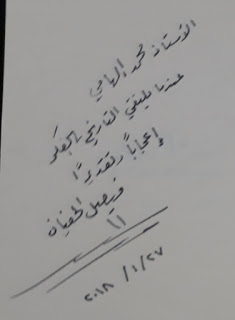 الأستاذ محمد إلهامي
عندما يلتقي التاريخ بالفكر
إعجاباً وتقديراً
فيصل الحفيان
٢٠١٨ / ١ / ٢٧